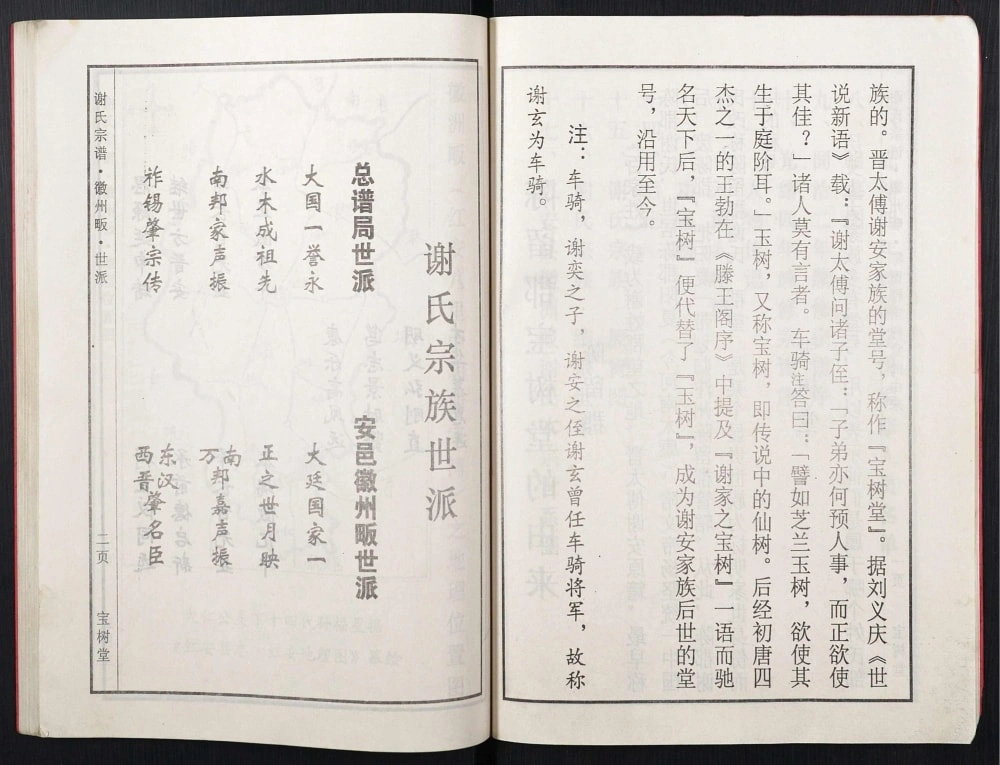 族的。晋太傅谢安家族的堂号，称作『宝树堂』。据刘义庆《世
说新语》载：『谢太傅问诸子侄：「子弟亦何预人事，而正欲使
其佳？」诸人莫有言者。车骑注答曰：「譬如芝兰玉树，欲使其
生于庭阶耳。」玉树，又称宝树，即传说中的仙树。后经初唐四
杰之一的王勃在《滕王阁序》中提及『谢家之宝树』一语而驰
名天下后，『宝树』便代替了『玉树』，成为谢安家族后世的堂
号，沿用至今。
注：车骑，谢奕之子，谢安之侄谢玄曾任车骑将军，故称
谢玄为车骑。
谢氏宗族世派
总谱局世派
大国一誉永
水木成祖先
南邦家声振
祚锡肇宗传
安邑徽州畈世派
大廷国家一
正之世月映
南万邦嘉声振
东汉西晋肇名臣
谢氏宗谱·徽州畈·世派
二页
宝树堂